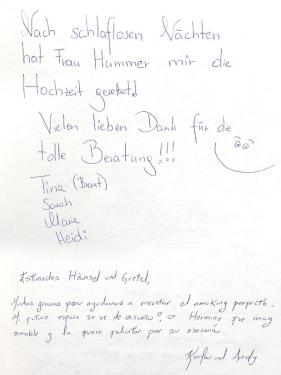 Nach schlaflosen Nächten
hat Frau Hummer mir die
Hochzeit gerettet!
Vielen lieben Dank für die
tolle Beratung!!!
Tina (Braut)
Sarah
Mara
Heidi
Estimados Hänsel und Gretel,
Muchas gracias por ayudarnos a encontrar el smoking perfecto.
Mi futuro esposo se ve de ensueño! Hermine fue muy
amable y la quiero felicitar por su asesoría.
und Andy